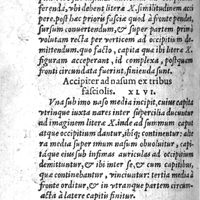 ferendi, vbi debent litera X. similitudinem acci
pere. post hac prioris fascia quod à fronte pendet,
sursum conuertendum, & super partem primi
volutam recta per verticem ad occipitium di-
mittendum. quo facto, capita qua ibi litera X.
figuram acceperant, id complexa, postquam
fronti circundata fuerint, finienda sunt.
Accipiter ad nasum ex tribus
fasciolis. XLVI.
Vna sub imo naso media incipit, cuius capita
vtrinque iuxta nares inter supercilia ducuntur
ad imaginem litera X. inde ad summum caput
atque occipitium dantur, ibiq; continentur: alte
ra media super imum nasum obuoluitur, capi-
tibus eius sub infimas auriculas, ad occipitium
datis, & vbi inter se, & cum capitibus,
qua continebantur, vinciuntur: tertia media à
fronte orditur, & in vtranque partem circum-
acta à latere capitis finitur.